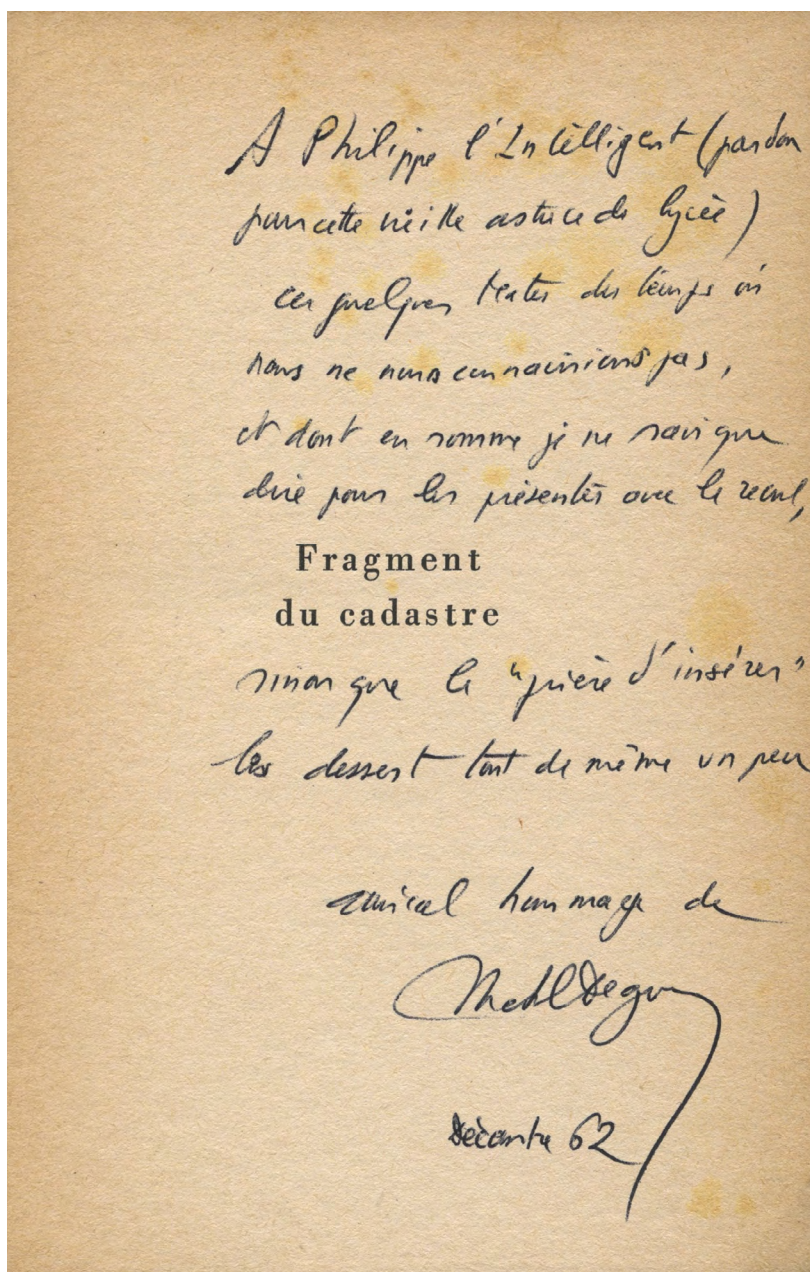 A Philippe l'Intelligent (pardon
pour cette vieille astuce de lycée)
ces quelques textes du temps où
nous ne nous connaissions pas,
et dont en somme je ne sais que
dire pour les présenter avec le recul,
Fragment
du cadastre
sinon que le "prière d'insérer"
les dessert tout de même un peu
amical hommage de
Michel Deguy
Décembre 62